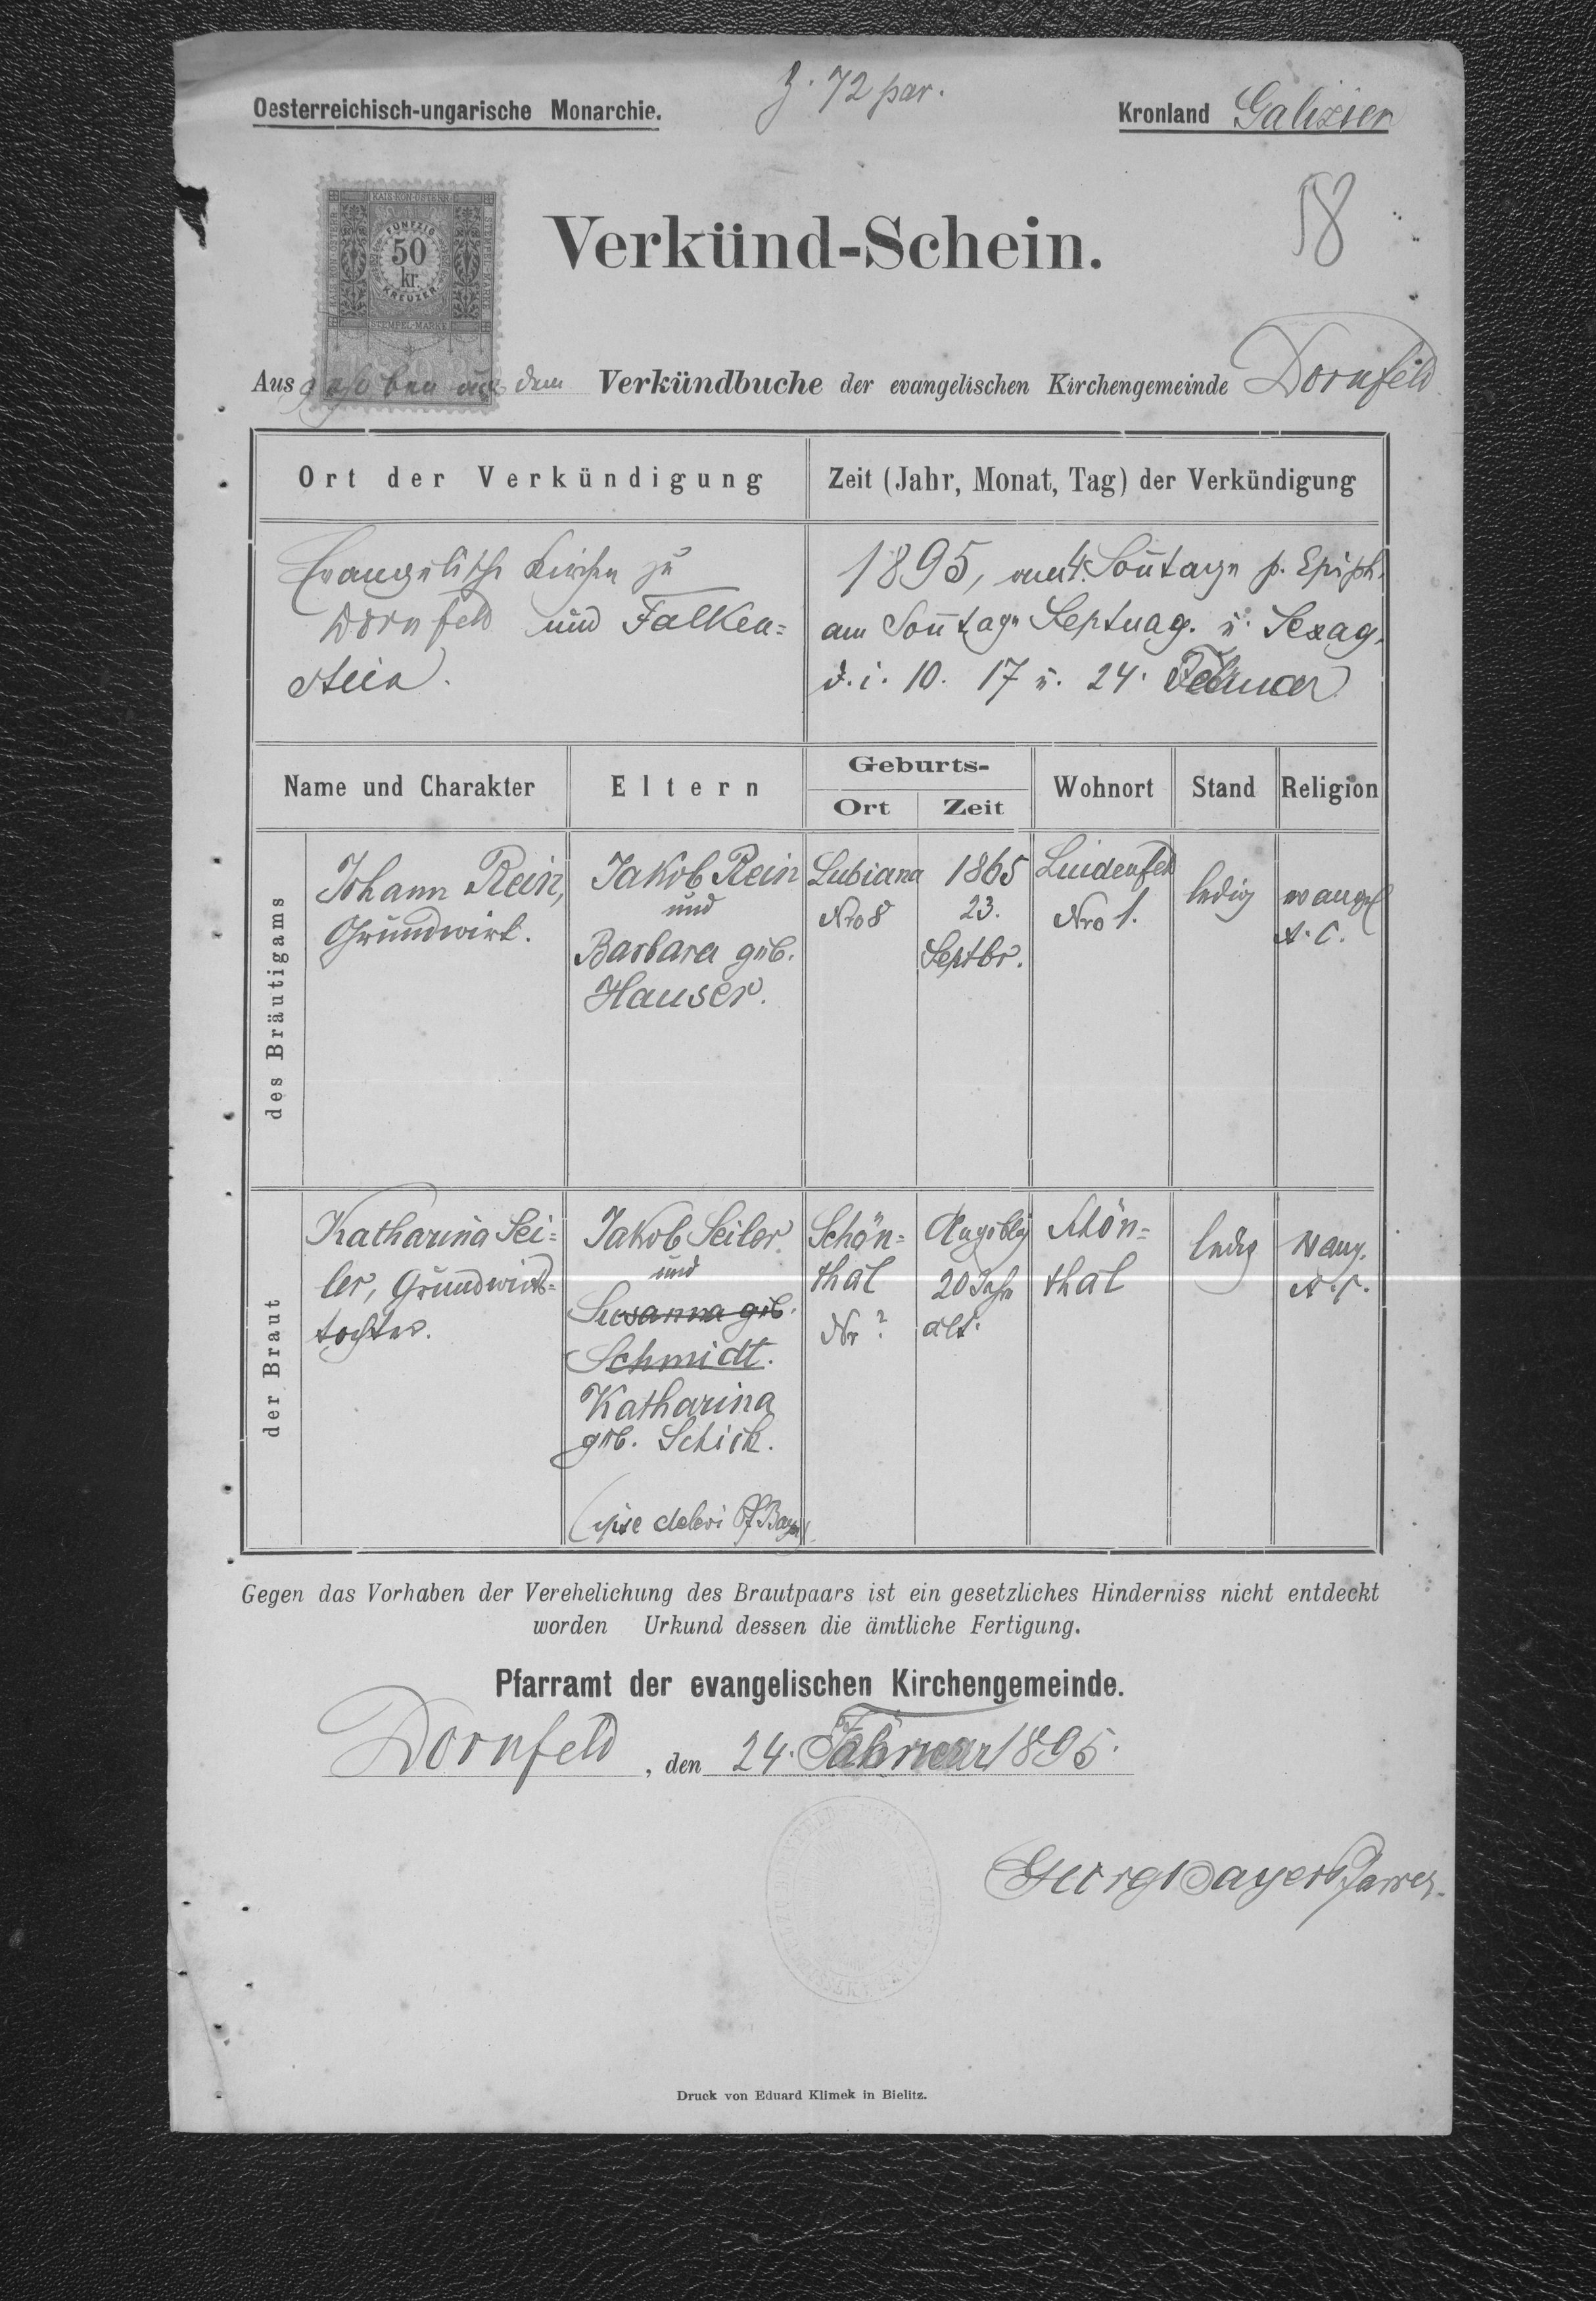 Z. 72 par.
Oesterreichisch-ungarische Monarchie.
Kronland Galizien
58
KAIS.KÖN.ÖSTERR.
FÜNFZIG
50
kr.
KREUZER
STEMPEL-MARKE
Verkünd-Schein.
Ausgegeben aus dem Verkündbuche der evangelischen Kirchengemeinde Dornfeld
Ort der Verkündigung
Zeit (Jahr, Monat, Tag) der Verkündigung
Evangelische Kirchen zu
Dornfeld und Falken=
stein.
1895, am 4. Soñtage p. Epiph.
am Soñtage Septuag. u. Sexag.
d. i. 10. 17 u. 24. Februar
Name und Charakter
Eltern
Geburts-
Ort
Zeit
Wohnort
Stand
Religion
des Bräutigams
Johann Rein,
Grundwirt.
Jakob Rein
und
Barbara geb.
Hauser.
Lubiana
Nro 8
1865
23.
Septbr.
Lindenfeld
Nro 1.
ledig
evangel
A. C.
der Braut
Katharina Sei=
ler, Grundwirts=
tochter.
Jakob Seiler
und
Susanna geb.
Schmidt.
Katharina
geb. Schick.
(ipse delevi Pf. Bayer)
Schön=
thal
Nr ?
Angeblich
20 Jahre
alt.
Schön=
thal
ledig
evang.
A. C.
Gegen das Vorhaben der Verehelichung des Brautpaars ist ein gesetzliches Hinderniss nicht entdeckt
worden Urkund dessen die ämtliche Fertigung.
Pfarramt der evangelischen Kirchengemeinde.
Dornfeld, den 24. Februar 1895.
Georg Bayer Pfarrer.
Druck von Eduard Klimek in Bielitz.